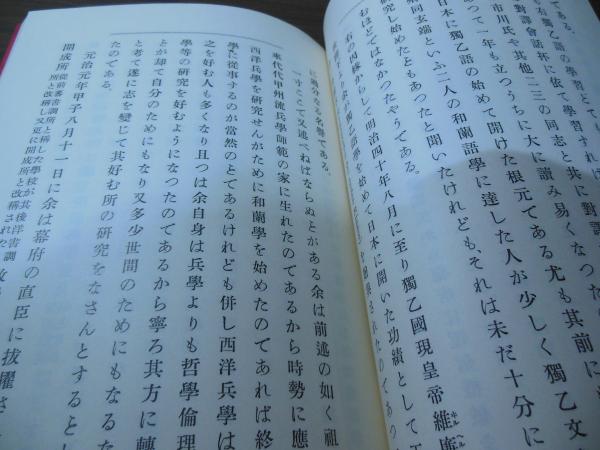 である。
も有獨乙語の學習とても
對譯會話杯に依て學習すれば
市川氏や其他二三の同志と共に對譯
あつて一年も立つうちに大に讀み易くなつた
である尤も其前に
日本に獨乙語の始めて開けた根元
といふ二人の和蘭語學に達した人が少しく獨乙文
研究し始めたともあつたと聞いたけれども、それは未だ十分に
むほどてはなかつたやうである。
右の四
からして明治四十年八月に至り獨乙國現皇帝維廉
獨乙語學を始めて日本に開いた功績として
に過分なる名譽である。
一すこて又述べねばならぬとがある余は前述の如く祖
來代代甲州流兵學師範の家に生れたのであるから時勢に應
西洋兵學を研究せんがために和蘭學を始めたのであれば終
學に從事するのが當然のとてあるけれども併し西洋兵學は
之を好む人も多くなり且つは余自身は兵學よりも哲學倫理
學等の研究を好むようになつたのであるから寧ろ其方に轉
とが却て自分のためにもなり又多少世間のためにもなるた
と考て遂に志を變じて其好む所の研究をなさんとすると
たのである。
元治元年甲子八月十一日に余は幕府の直臣に拔擢さ
開成所
從前蕃書調所と稱した學校が其後洋書調
所と改稱し又更に開成所と改稱された